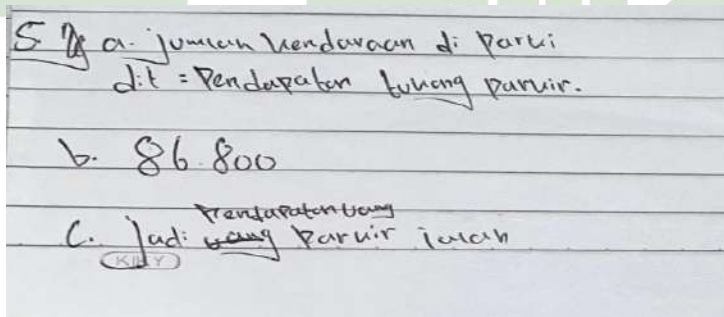 5. a. jumlah kendaraan di Parki
dit = Pendapatan tukang parkir.
b. 86.800
Pendapatan uang
c. jadi uang Parkir ialah
KIKY